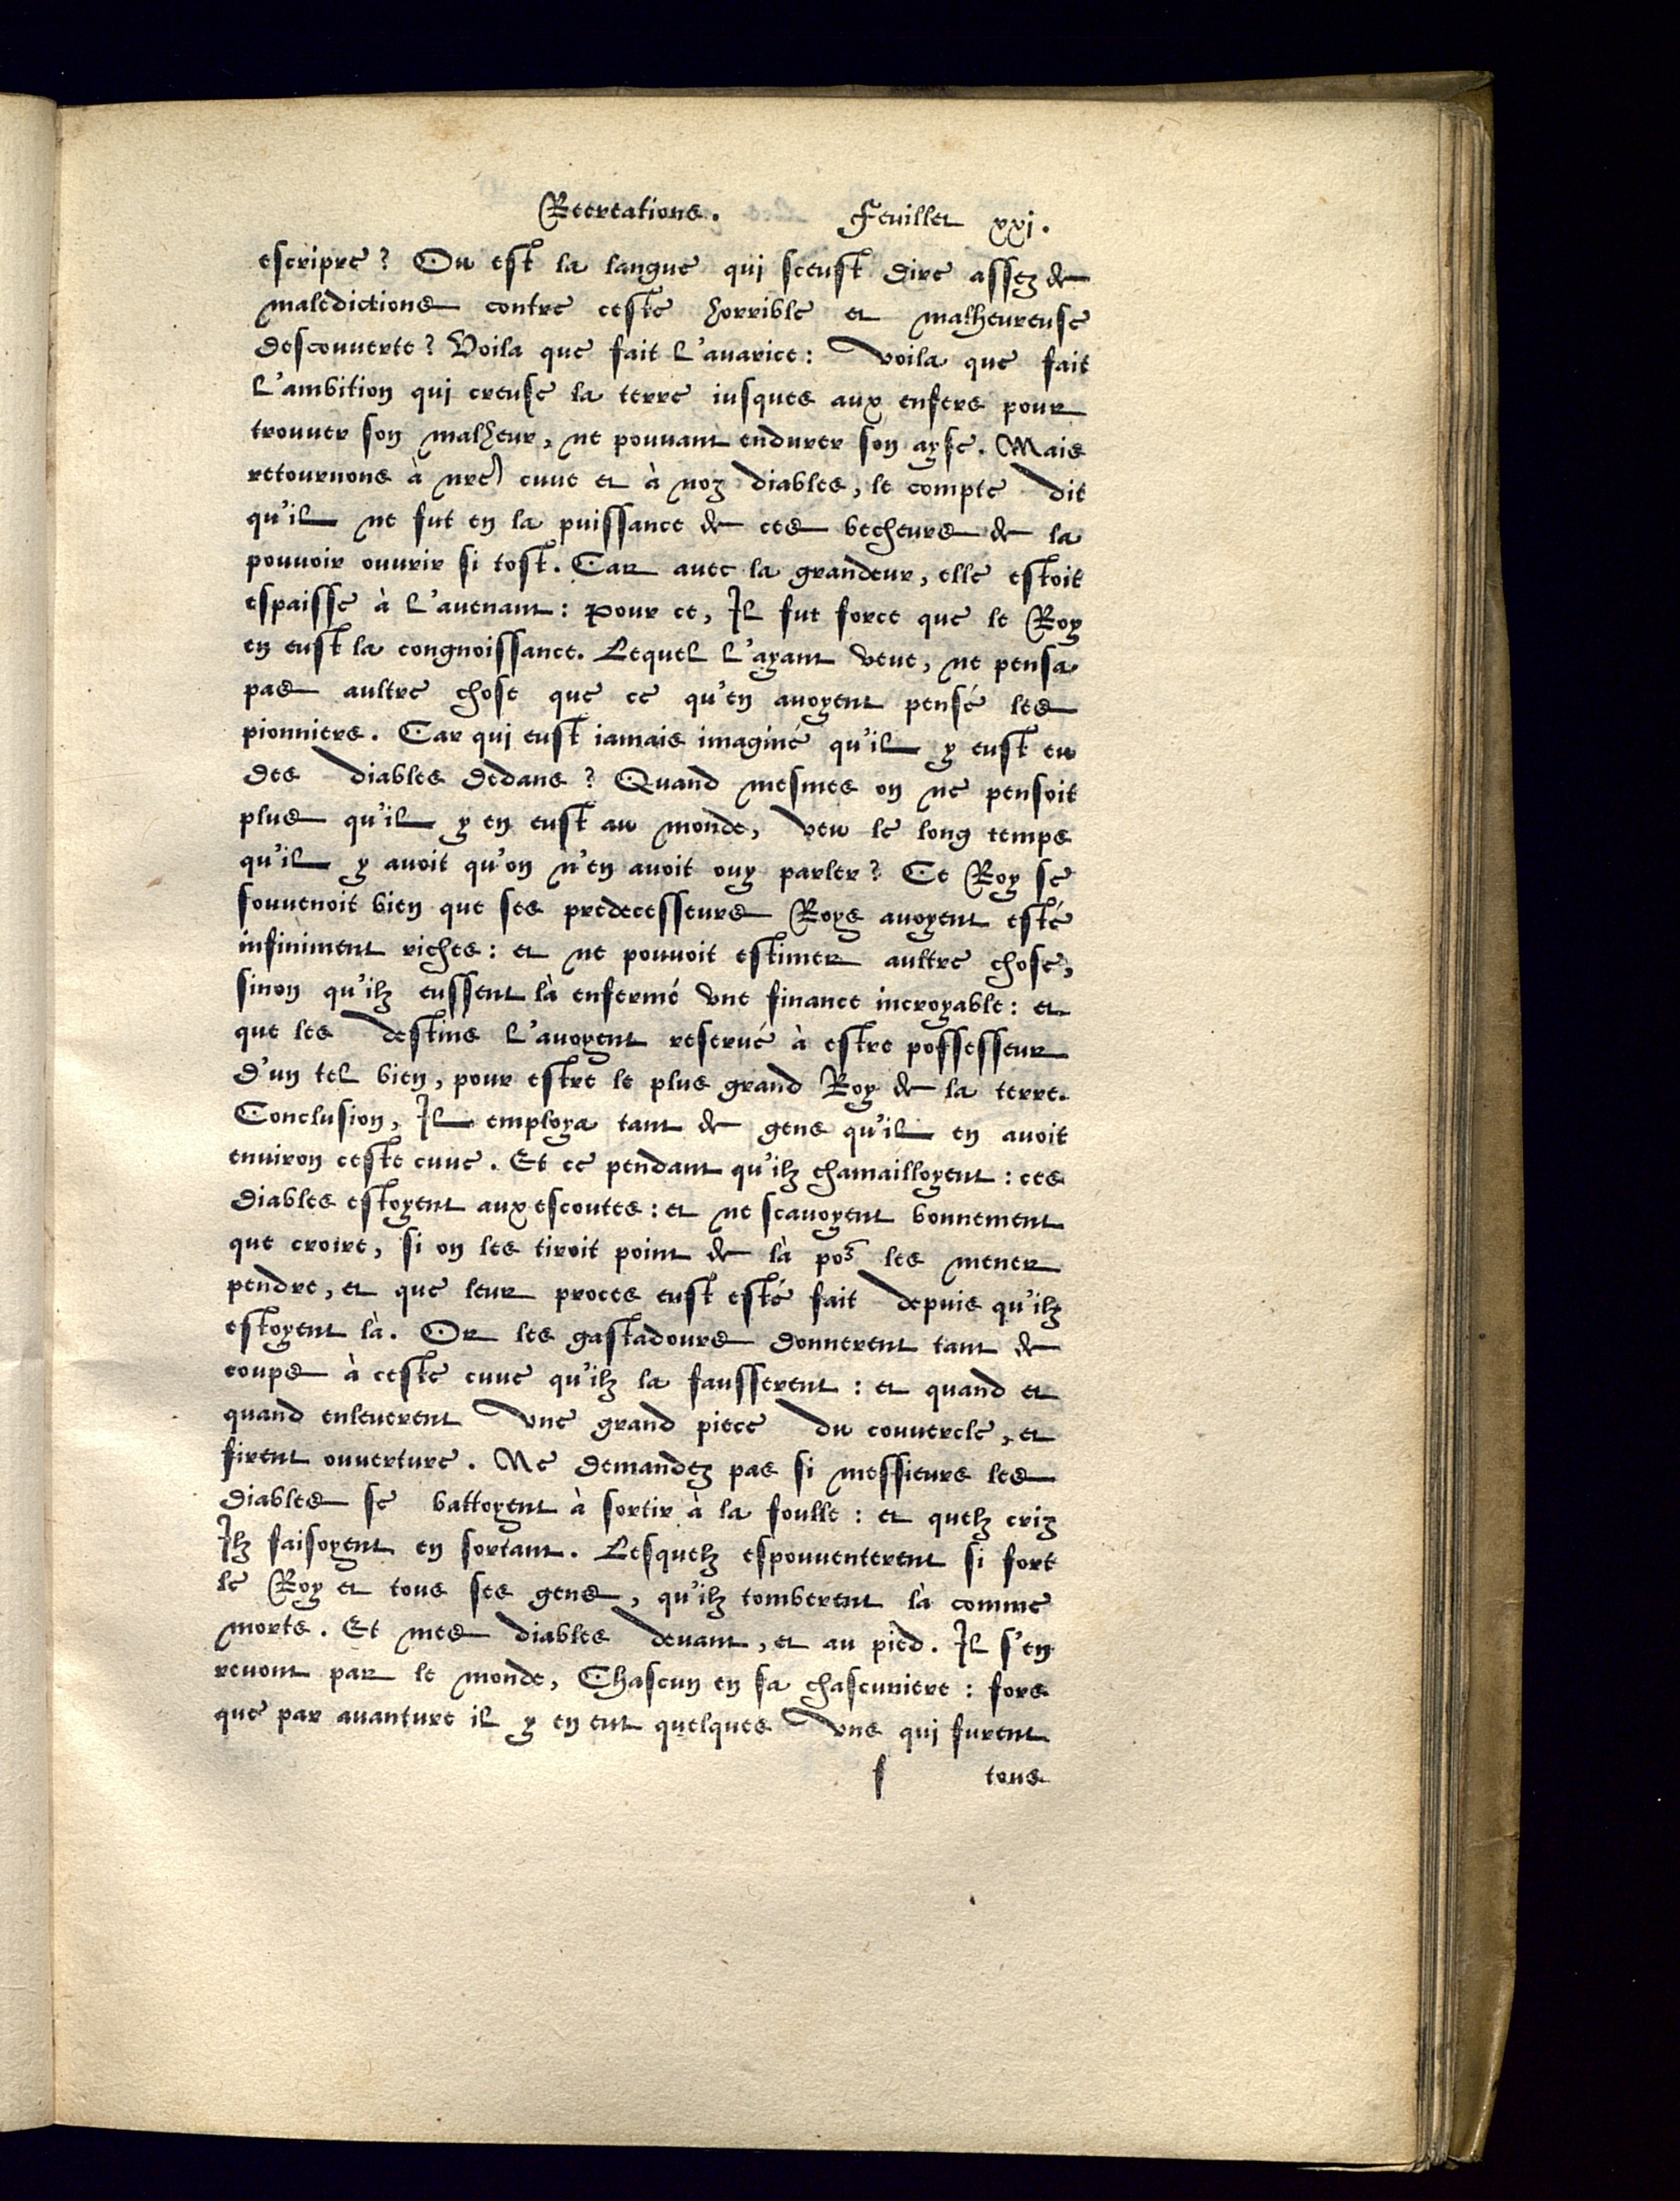 Recreations. Feuillet xxj.
escripre? Ou est la langue qui sceust dire assez de
maledictions contre ceste horrible et malheureuse
descouuerte? Voila que fait l'auarice: voila que fait
l'ambition qui creuse la terre iusques aux enfers pour
trouuer son malheur, ne pouuant endurer son ayse. Mais
retournons à nre cuue et à noz diables, le compte dit
qu'il ne fut en la puissance de ces becheurs de la
pouuoir ouurir si tost. Car auec la grandeur, elle estoit
espaisse à l'auenant: pour ce, Il fut force que le Roy
en eust la congnoissance. Lequel l'ayant veue, ne pensa
pas aultre chose que ce qu'en auoyent pensé les
pionniers. Car qui eust iamais imaginé qu'il y eust eu
des diables dedans? Quand mesmes on ne pensoit
plus qu'il y en eust au monde, veu le long temps
qu'il y auoit qu'on n'en auoit ouy parler? Ce Roy se
souuenoit bien que ses predecesseurs Roys auoyent esté
infiniment riches: et ne pouuoit estimer aultre chose,
sinon qu'ilz eussent là enfermé vne finance incroyable: et
que les destins l'auoyent reserué à estre possesseur
d'un tel bien, pour estre le plus grand Roy de la terre.
Conclusion, Il employa tant de gens qu'il en auoit
enuiron ceste cuue. Et ce pendant qu'ilz chamailloyent: ces
diables estoyent aux escoutes: et ne scauoyent bonnement
que croire, si on les tiroit point de là pos les mener
pendre, et que leur proces eust esté fait depuis qu'ilz
estoyent là. Or les gastadours donnerent tant de
coups à ceste cuue qu'ilz la fausserent: et quand et
quand enleuerent vne grand piece du couuercle, et
firent ouuerture. Ne demandez pas si messieurs les
diables se battoyent à sortir à la foulle: et quelz criz
Ilz faisoyent en sortant. Lesquelz espouuenterent si fort
le Roy et tous ses gens, qu'ilz tomberent là comme
morts. Et mes diables deuant, et au pied. Il s'en
reuont par le monde, Chascun en sa chascuniere: fors
que par auanture il y en eut quelques vns qui furent
f tous